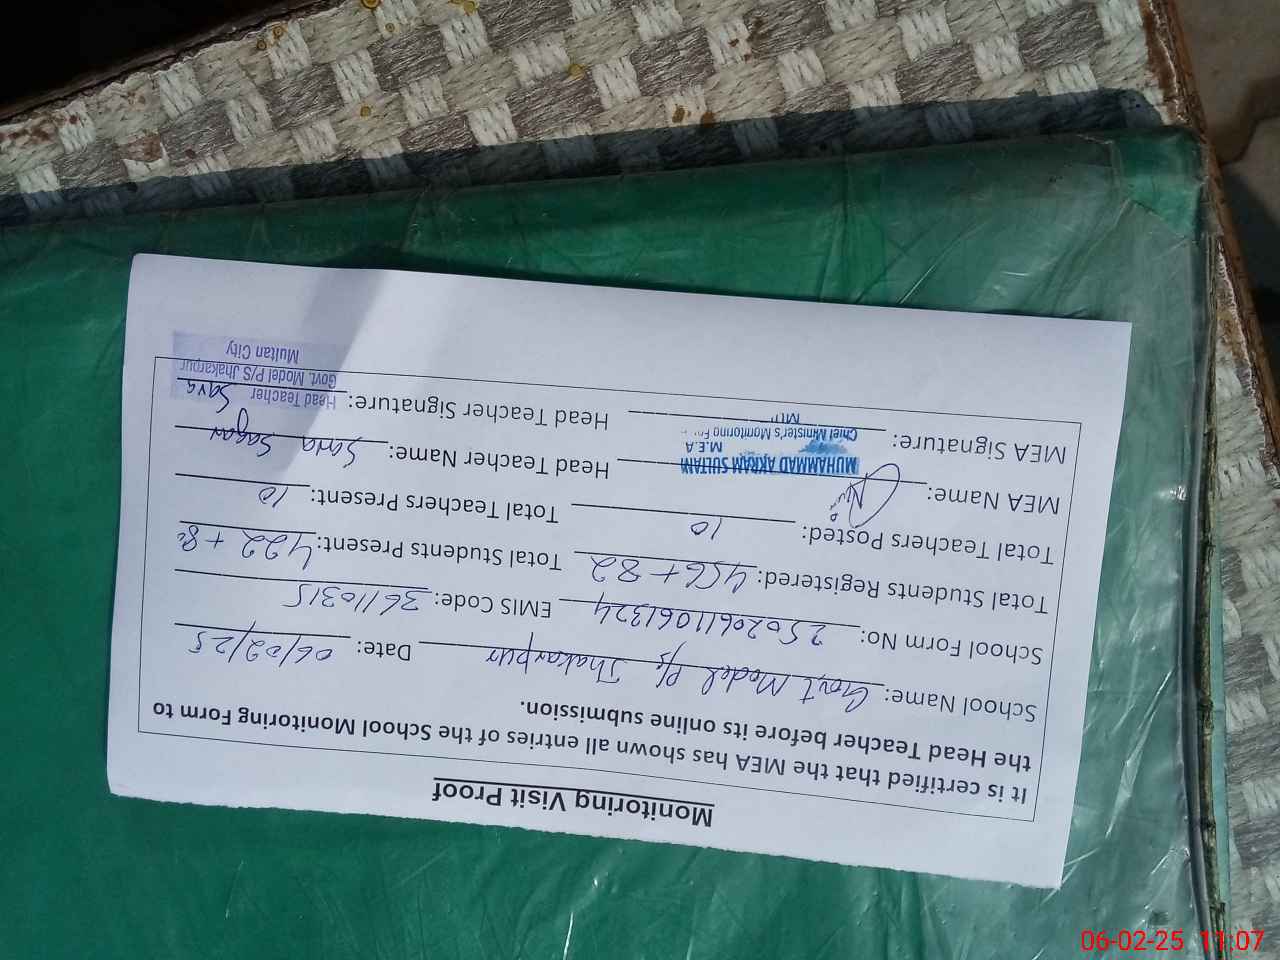 Monitoring Visit Proof
It is certified that the MEA has shown all entries of the School Monitoring Form to
the Head Teacher before its online submission.
School Name: Govt Model P/S Jhakarpur Date: 06/02/25
School Form No: 25020611061324 EMIS Code: 36110315
Total Students Registered: 456+82 Total Students Present: 422+8
Total Teachers Posted: 10 Total Teachers Present: 10
MEA Name: MUHAMMAD AKRAM SULTANI Head Teacher Name: Sara Sagar
M.E.A
Chief Minister's Monitoring
MEA Signature: Head Teacher Signature: Sara
Head Teacher
Govt. Model P/S Jhakarpur
Multan City
06-02-25 11:07